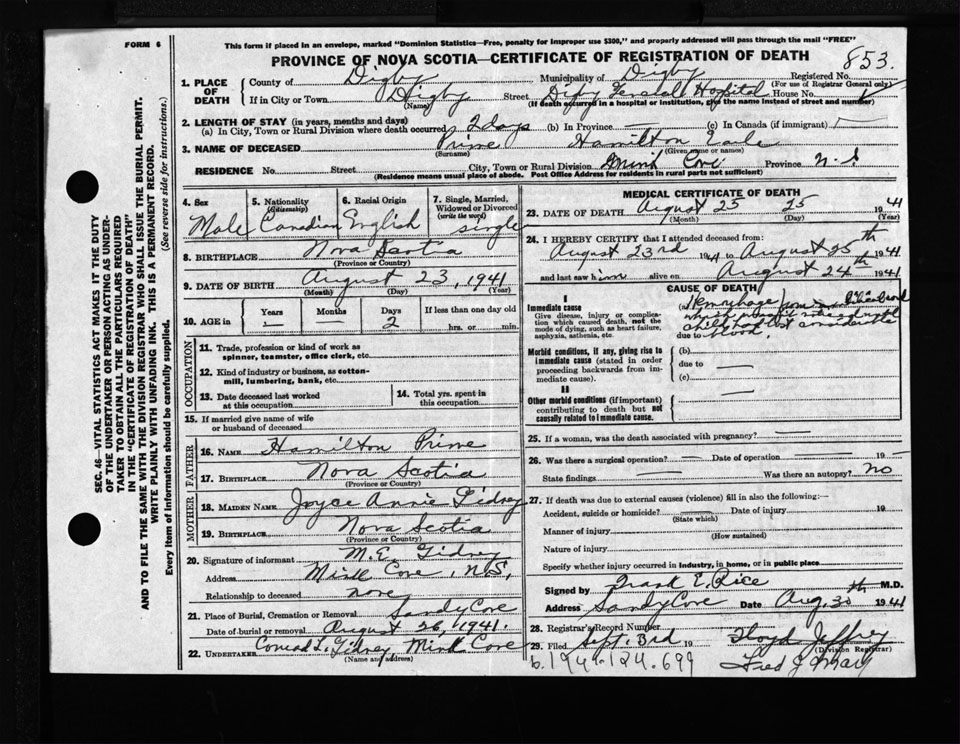 FORM 6
This form if placed in an envelope, marked "Dominion Statistics—Free, penalty for improper use $300," and properly addressed will pass through the mail "FREE"
PROVINCE OF NOVA SCOTIA—CERTIFICATE OF REGISTRATION OF DEATH
853.
1. PLACE OF DEATH
County of Digby Municipality of Digby Registered No.
(For use of Registrar General only)
If in City or Town Digby Street Hospital House No.
(Name) (If death occurred in a hospital or institution, give the name instead of street and number)
2. LENGTH OF STAY (in years, months and days)
(a) In City, Town or Rural Division where death occurred 2 days (b) In Province — (c) In Canada (if immigrant)
3. NAME OF DECEASED Prime Hamilton
(Surname) (Given name or names)
RESIDENCE No. Street City, Town or Rural Division Mink Cove Province N.S
(Residence means usual place of abode. Post Office Address for residents in rural parts not sufficient)
4. Sex
Male
5. Nationality (Citizenship)
Canadian
6. Racial Origin
English
7. Single, Married, Widowed or Divorced (write the word)
single
8. BIRTHPLACE Nova Scotia
(Province or Country)
9. DATE OF BIRTH August 23, 1941
(Month) (Day) (Year)
10. AGE in Years Months Days If less than one day old
— 2 hrs. or min.
OCCUPATION
11. Trade, profession or kind of work as spinner, teamster, office clerk, etc.
12. Kind of industry or business, as cotton-mill, lumbering, bank, etc.
13. Date deceased last worked at this occupation
14. Total yrs. spent in this occupation
15. If married give name of wife or husband of deceased
FATHER
16. NAME Hamilton Prime
17. BIRTHPLACE Nova Scotia
(Province or Country)
MOTHER
18. MAIDEN NAME Joyce Annie Gidney
19. BIRTHPLACE Nova Scotia
(Province or Country)
20. Signature of informant M.E. Gidney
Address Mink Cove, N.S,
Relationship to deceased none
21. Place of Burial, Cremation or Removal Sandy Cove
Date of burial or removal August 26, 1941.
22. UNDERTAKER Conrad L. Gidney, Mink Cove
(Name and address)
MEDICAL CERTIFICATE OF DEATH
23. DATE OF DEATH August 25 25 1941
(Month) (Day) (Year)
24. I HEREBY CERTIFY that I attended deceased from:
August 23rd 1941 to August 25th 1941
and last saw him alive on August 24th 1941
CAUSE OF DEATH
I
Immediate cause
Give disease, injury or complication which caused death, not the mode of dying, such as heart failure, asphyxia, asthenia, etc.
(a) Hemorrhage
child had lost considerable
due to blood.
Morbid conditions, if any, giving rise to immediate cause (stated in order proceeding backwards from immediate cause).
(b)
due to —
(c)
II
Other morbid conditions (if important) contributing to death but not causally related to immediate cause.
25. If a woman, was the death associated with pregnancy? —
26. Was there a surgical operation? — Date of operation — 19 —
State findings Was there an autopsy? no
27. If death was due to external causes (violence) fill in also the following:—
Accident, suicide or homicide? Date of injury 19
(State which)
Manner of injury
(How sustained)
Nature of injury
Specify whether injury occurred in industry, in home, or in public place
Signed by Frank E. Rice M.D.
Address Sandy Cove Date Aug. 30th 1941
28. Registrar's Record Number
29. Filed Sept. 3rd 19 Lloyd Jeffrey
(Division Registrar)
b.1941-124.699
SEC. 46—VITAL STATISTICS ACT MAKES IT THE DUTY
OF THE UNDERTAKER OR PERSON ACTING AS UNDERTAKER TO OBTAIN ALL THE PARTICULARS REQUIRED
IN THE "CERTIFICATE OF REGISTRATION OF DEATH"
AND TO FILE THE SAME WITH THE DIVISION REGISTRAR WHO SHALL ISSUE THE BURIAL PERMIT.
WRITE PLAINLY WITH UNFADING INK. THIS IS A PERMANENT RECORD.
Every item of information should be carefully supplied. (See reverse side for instructions.)